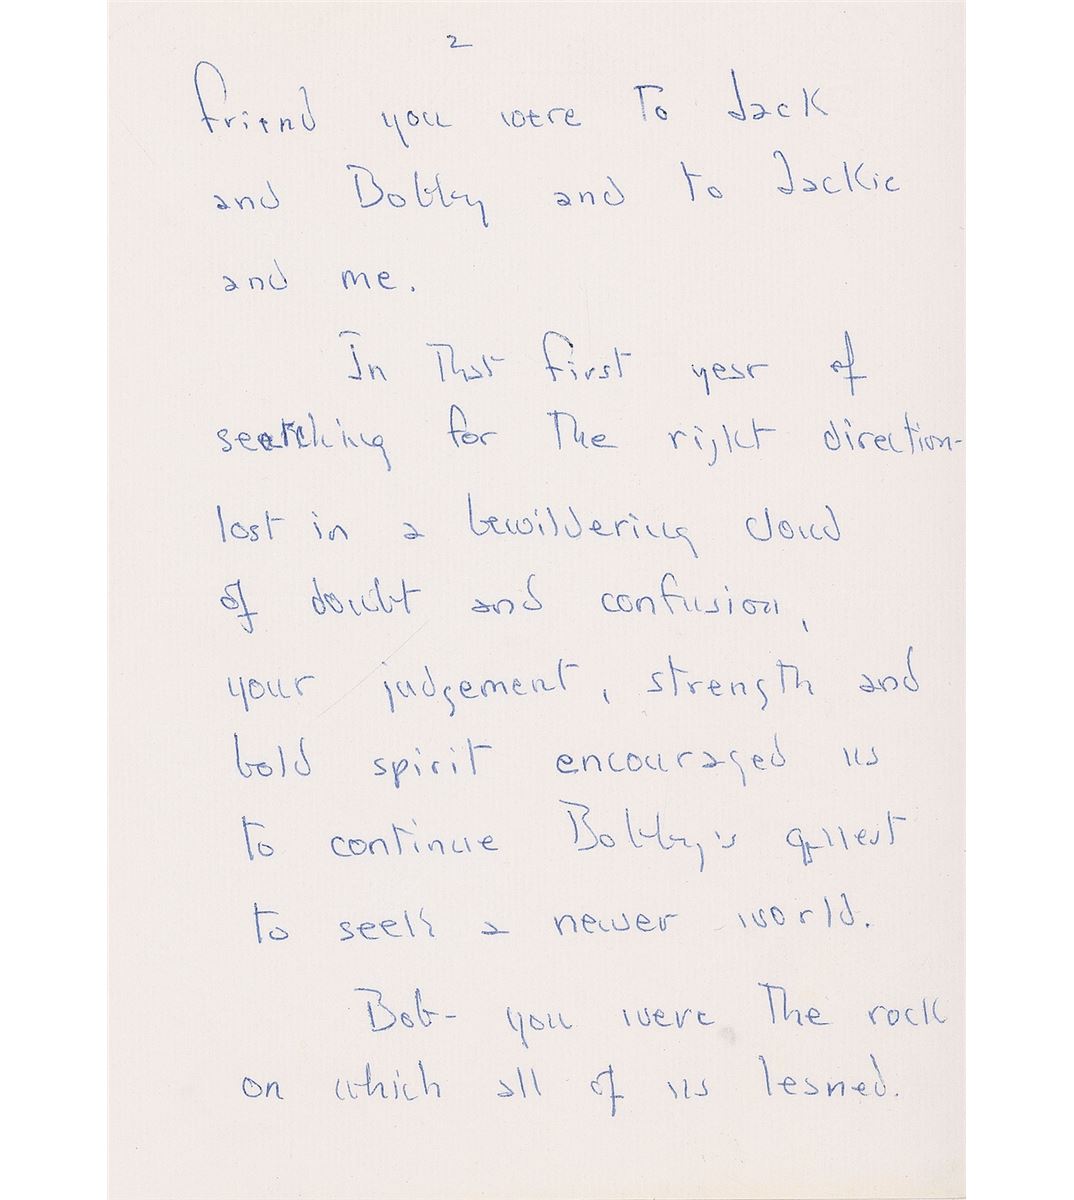 2
friend you were to Jack
and Bobby and to Jackie
and me.
In that first year of
searching for the right direction-
lost in a bewildering cloud
of doubt and confusion,
your judgement, strength and
bold spirit encouraged us
to continue Bobby's quest
to seek a newer world.
Bob- you were the rock
on which all of us leaned.